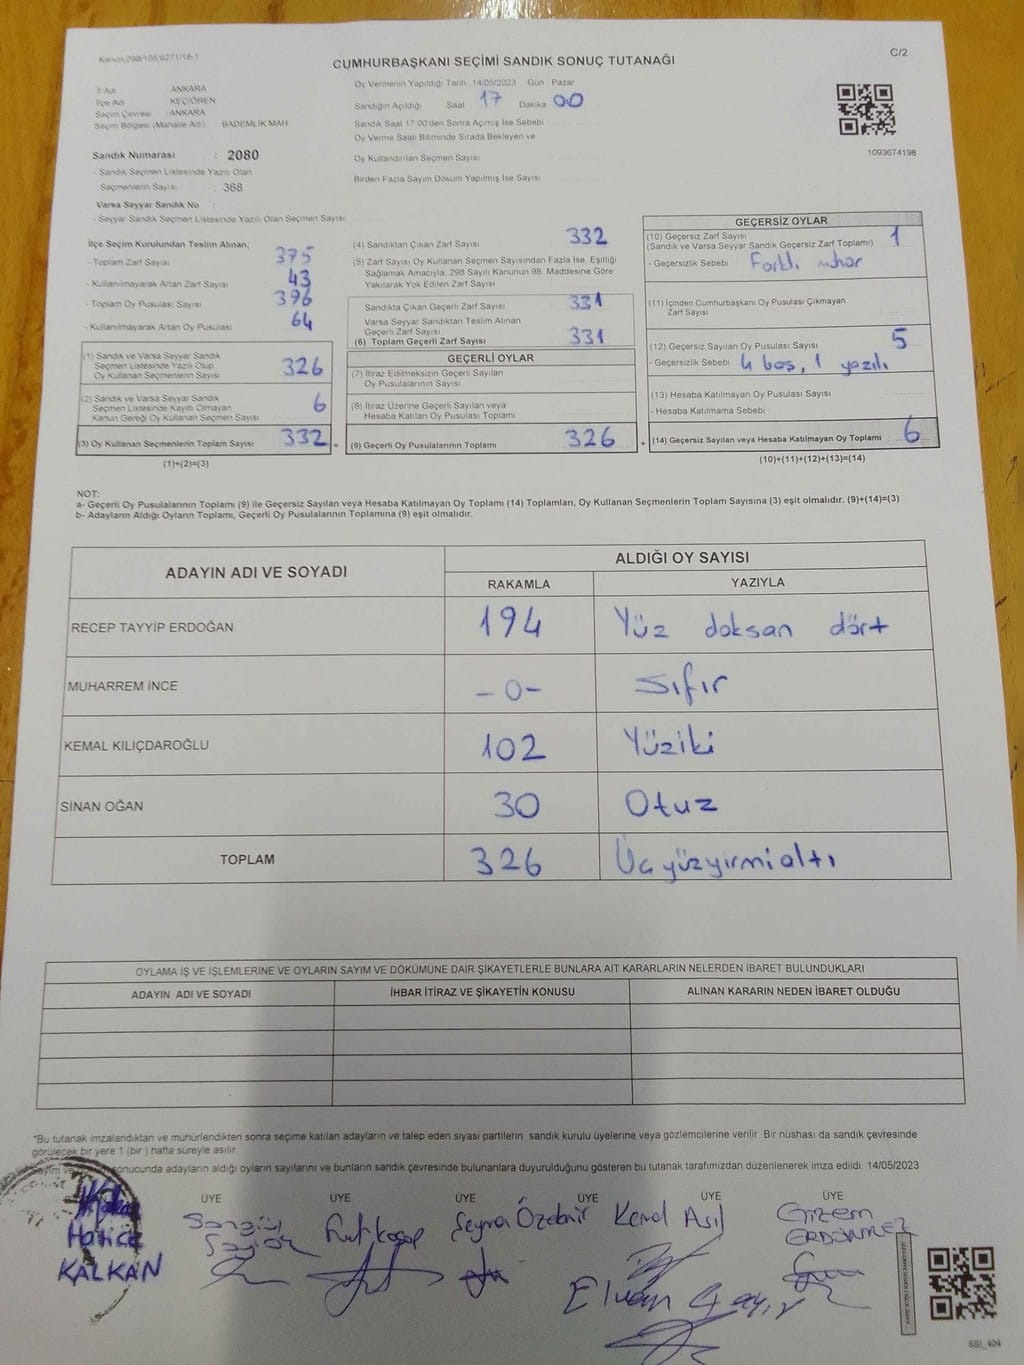 Kanun:298/105/6271/18-1
C/2
CUMHURBAŞKANI SEÇİMİ SANDIK SONUÇ TUTANAĞI
İl Adı ANKARA
İlçe Adı KEÇİÖREN
Seçim Çevresi : ANKARA
Seçim Bölgesi (Mahalle Adı) BADEMLİK MAH
Oy Vermenin Yapıldığı Tarih 14/05/2023 Gün Pazar
Sandığın Açıldığı Saat 17 Dakika 00
Sandık Saat 17:00'den Sonra Açılmış İse Sebebi
Oy Verme Saati Bitiminde Sırada Bekleyen ve
Oy Kullandırılan Seçmen Sayısı
Birden Fazla Sayım Döküm Yapılmış İse Sayısı
1093674198
Sandık Numarası : 2080
- Sandık Seçmen Listesinde Yazılı Olan
Seçmenlerin Sayısı : 368
Varsa Seyyar Sandık No :
- Seyyar Sandık Seçmen Listesinde Yazılı Olan Seçmen Sayısı
İlçe Seçim Kurulundan Teslim Alınan;
- Toplam Zarf Sayısı 375
- Kullanılmayarak Artan Zarf Sayısı 43
- Toplam Oy Pusulası Sayısı 396
- Kullanılmayarak Artan Oy Pusulası 64
(1) Sandık ve Varsa Seyyar Sandık
Seçmen Listesinde Yazılı Olup
Oy Kullanan Seçmenlerin Sayısı 326
(2) Sandık ve Varsa Seyyar Sandık
Seçmen Listesinde Kayıtlı Olmayan
Kanun Gereği Oy Kullanan Seçmen Sayısı 6
(3) Oy Kullanan Seçmenlerin Toplam Sayısı 332 =
(1)+(2)=(3)
(4) Sandıktan Çıkan Zarf Sayısı 332
(5) Zarf Sayısı Oy Kullanan Seçmen Sayısından Fazla İse, Eşitliği
Sağlamak Amacıyla, 298 Sayılı Kanunun 98. Maddesine Göre
Yakılarak Yok Edilen Zarf Sayısı
Sandıkta Çıkan Geçerli Zarf Sayısı 331
Varsa Seyyar Sandıktan Teslim Alınan
Geçerli Zarf Sayısı
(6) Toplam Geçerli Zarf Sayısı 331
GEÇERLİ OYLAR
(7) İtiraz Edilmeksizin Geçerli Sayılan
Oy Pusulalarının Sayısı
(8) İtiraz Üzerine Geçerli Sayılan veya
Hesaba Katılan Oy Pusulası Toplamı
(9) Geçerli Oy Pusulalarının Toplamı 326 +
GEÇERSİZ OYLAR
(10) Geçersiz Zarf Sayısı
(Sandık ve Varsa Seyyar Sandık Geçersiz Zarf Toplamı) 1
- Geçersizlik Sebebi Farklı mühür
(11) İçinden Cumhurbaşkanı Oy Pusulası Çıkmayan
Zarf Sayısı
(12) Geçersiz Sayılan Oy Pusulası Sayısı 5
- Geçersizlik Sebebi 4 boş, 1 yazılı
(13) Hesaba Katılmayan Oy Pusulası Sayısı
- Hesaba Katılmama Sebebi
(14) Geçersiz Sayılan veya Hesaba Katılmayan Oy Toplamı 6
(10)+(11)+(12)+(13)=(14)
NOT:
a- Geçerli Oy Pusulalarının Toplamı (9) ile Geçersiz Sayılan veya Hesaba Katılmayan Oy Toplamı (14) Toplamları, Oy Kullanan Seçmenlerin Toplam Sayısına (3) eşit olmalıdır. (9)+(14)=(3)
b- Adayların Aldığı Oyların Toplamı, Geçerli Oy Pusulalarının Toplamına (9) eşit olmalıdır.
ADAYIN ADI VE SOYADI ALDIĞI OY SAYISI
RAKAMLA YAZIYLA
RECEP TAYYİP ERDOĞAN 194 Yüz doksan dört
MUHARREM İNCE -0- Sıfır
KEMAL KILIÇDAROĞLU 102 Yüziki
SİNAN OĞAN 30 Otuz
TOPLAM 326 Üçyüzyirmialtı
OYLAMA İŞ VE İŞLEMLERİNE VE OYLARIN SAYIM VE DÖKÜMÜNE DAİR ŞİKAYETLERLE BUNLARA AİT KARARLARIN NELERDEN İBARET BULUNDUKLARI
ADAYIN ADI VE SOYADI İHBAR İTİRAZ VE ŞİKAYETİN KONUSU ALINAN KARARIN NEDEN İBARET OLDUĞU
*Bu tutanak imzalandıktan ve mühürlendikten sonra seçime katılan adayların ve talep eden siyasi partilerin sandık kurulu üyelerine veya gözlemcilerine verilir. Bir nüshası da sandık çevresinde
görülecek bir yere 1 (bir) hafta süreyle asılır.
Sayım ve sonucunda adayların aldığı oyların sayılarını ve bunların sandık çevresinde bulunanlara duyurulduğunu gösteren bu tutanak tarafımızdan düzenlenerek imza edildi. 14/05/2023
ÜYE ÜYE ÜYE ÜYE ÜYE ÜYE
Hatice
KALKAN
Şeyma Özdemir
Kemal Asıl
Gizem
ERDÖNMEZ
Elvan
SSI_404